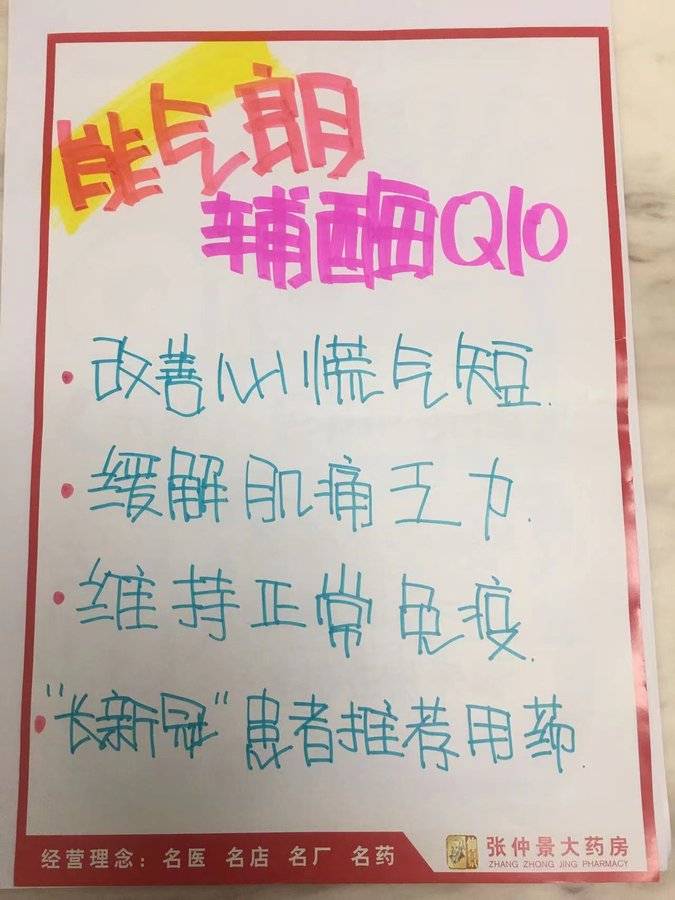 能气朗
辅酶Q10
· 改善心慌气短.
· 缓解肌痛乏力.
· 维持正常免疫.
· "长新冠"患者推荐用药.
经营理念：名医 名店 名厂 名药
张仲景大药房
ZHANG ZHONG JING PHARMACY